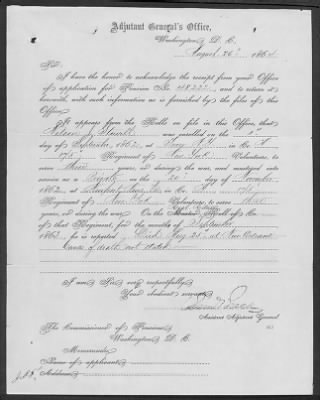 Adjutant General's Office,
Washington, D. C.
August 26th 1864
Sir:
I have the honor to acknowledge the receipt from your Office
of application for Pension No. 48222, and to return it
herewith, with such information as is furnished by the files of this
Office.
It appears from the Rolls on file in this Office, that
was enrolled on the
day of September, 1862, at Troy N.Y. in Co. A
Regiment of New York Volunteers, to
serve Three years, or during the war, and mustered into
service as a on the day of November
1862, at in Co.
Regiment of New York Volunteers, to serve three
years, or during the war. On the Muster Roll of Co.
of that Regiment, for the months of September
1863, he is reported Died Aug 25" at New Orleans
Cause of death not stated
I am Sir, very respectfully,
Your obedient servant,
Assistant Adjutant General
The Commissioner of Pensions
Washington D. C.
Memoranda:
Name of applicant
Address